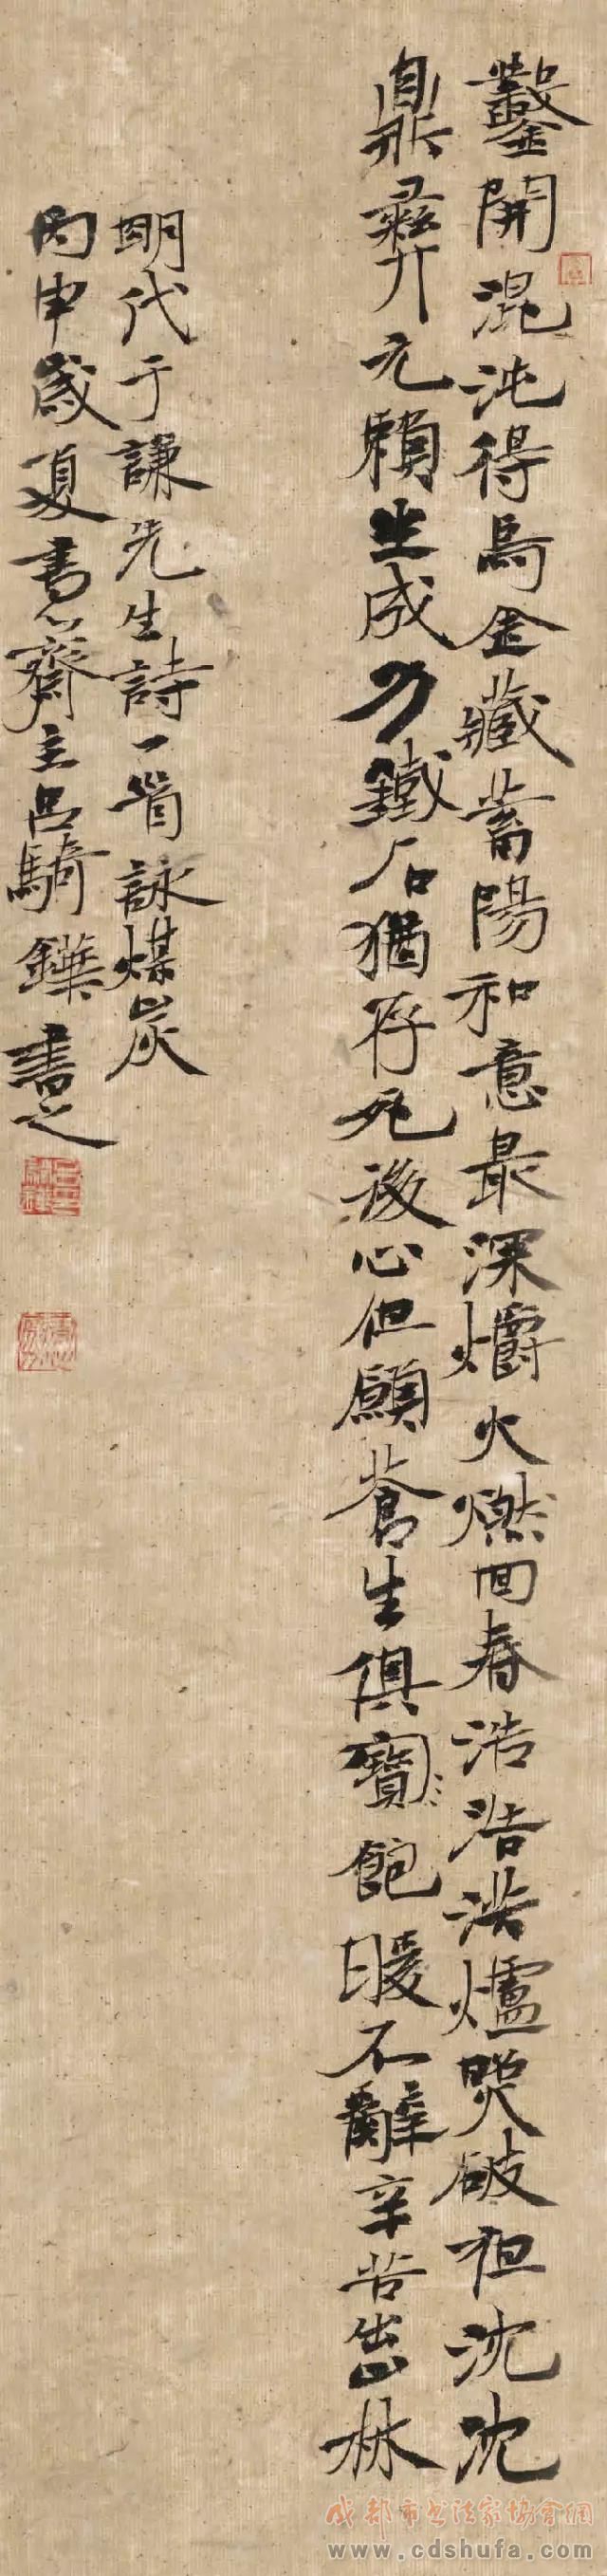 鑿開混沌得烏金藏蓄陽和意最深爝火燃回春浩浩洪爐照破沈沈
鼎彝元賴生成力鐵石猶存死後心但願蒼生俱寶飽暖不辭辛苦出山林
明代于謙先生詩一首詠煤炭
丙申歲夏書心齋主呂騎鏵書之
成都市书法家協會網
www.cdshufa.com